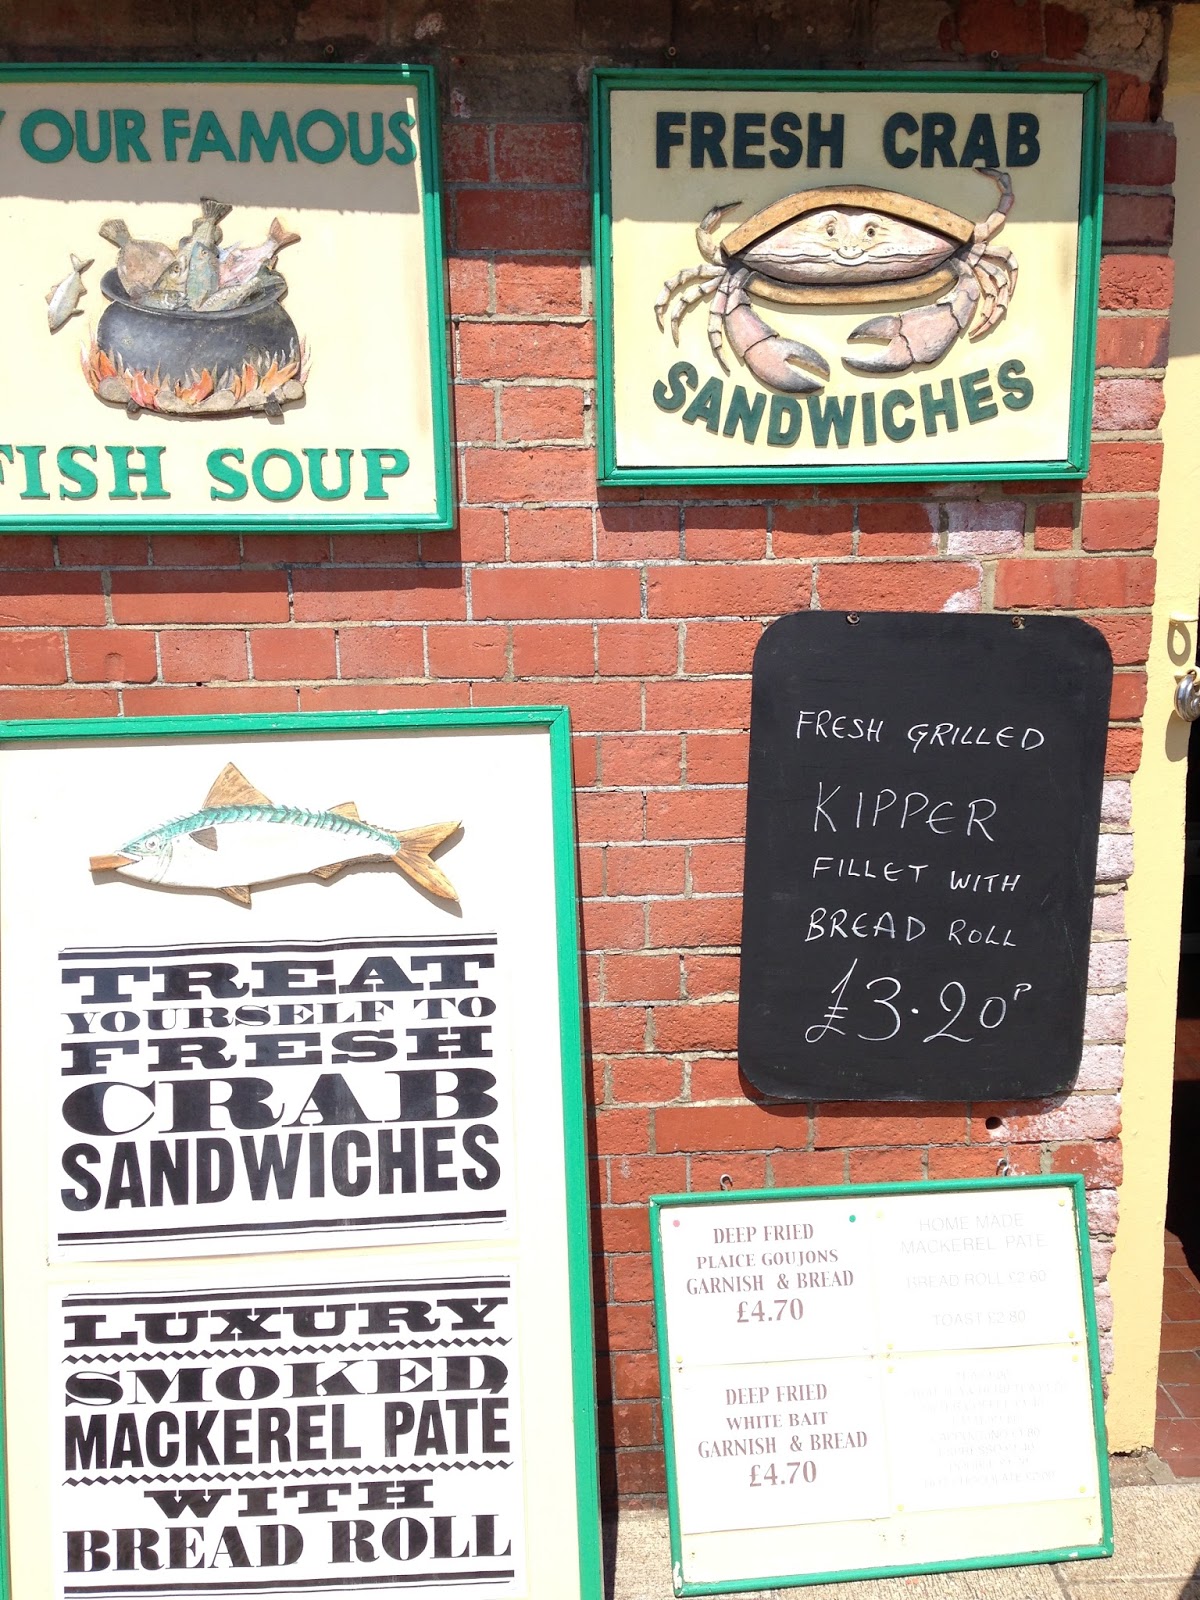 OUR FAMOUS
FISH SOUP
FRESH CRAB
SANDWICHES
FRESH GRILLED
KIPPER
FILLET WITH
BREAD ROLL
£3.20P
TREAT
YOURSELF TO
FRESH
CRAB
SANDWICHES
LUXURY
SMOKED
MACKEREL PATE
WITH
BREAD ROLL
DEEP FRIED
PLAICE GOUJONS
GARNISH & BREAD
£4.70
HOME MADE
MACKEREL PATE
BREAD ROLL £2.60
TOAST £2.80
DEEP FRIED
WHITE BAIT
GARNISH & BREAD
£4.70